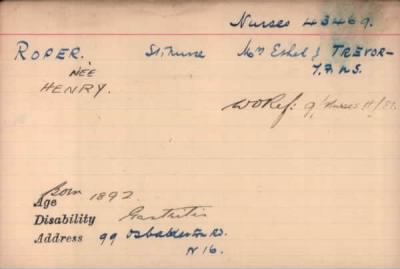 Nurses 43469.
ROPER. St. Nurse Mrs Ethel J TREVOR-
NÉE T.F.N.S.
HENRY.
W.O. Ref: 9/Nurses H/81.
Born 1892
Age
Disability Gastritis
Address 99 Osbaldeston Rd.
N 16.